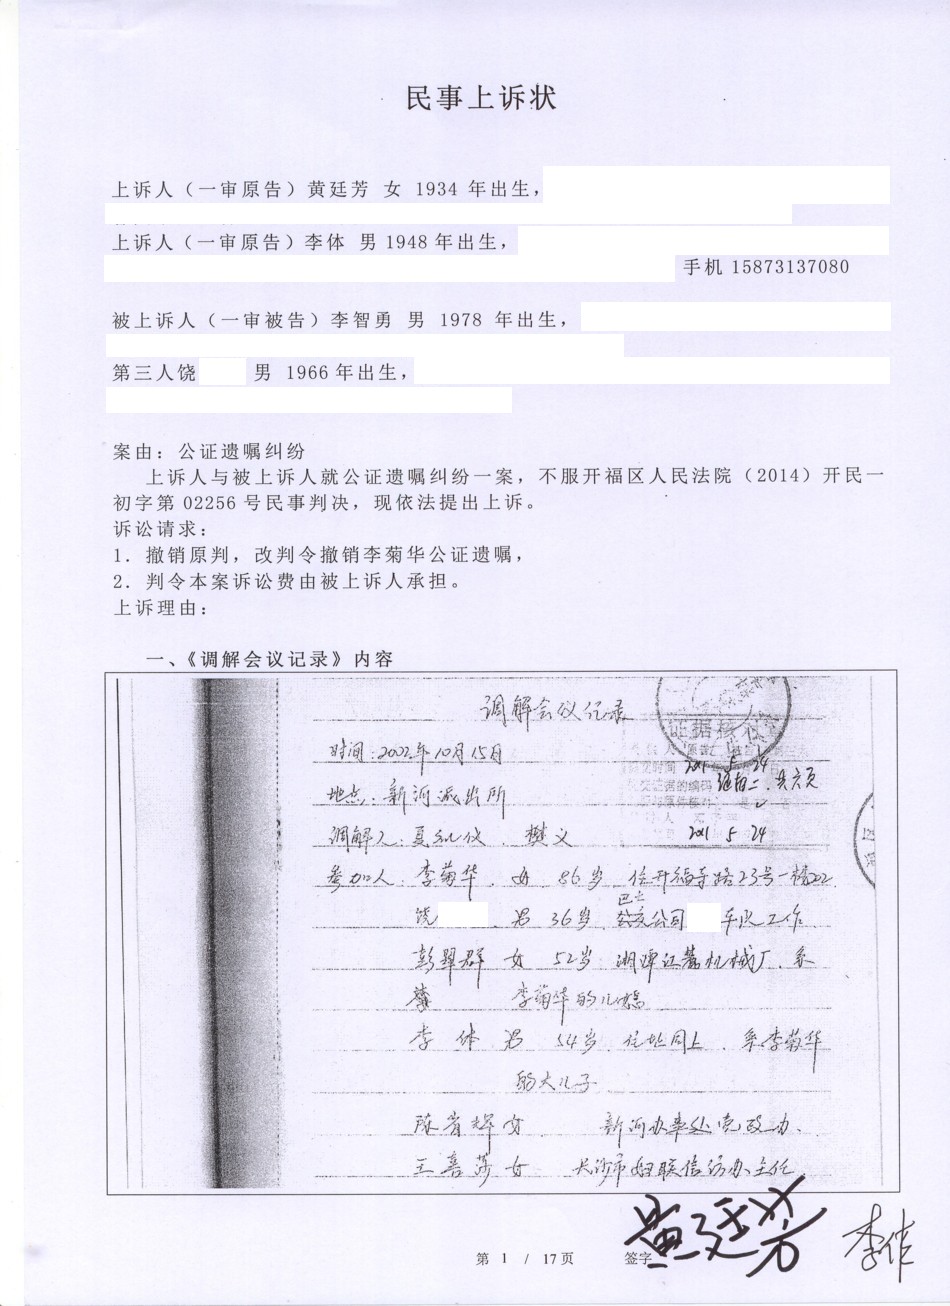 民事上诉状
上诉人（一审原告）黄廷芳 女 1934 年出生，
上诉人（一审原告）李体 男1948年出生，
手机 15873137080
被上诉人（一审被告）李智勇 男 1978 年出生，
第三人饶 男 1966年出生，
案由：公证遗嘱纠纷
上诉人与被上诉人就公证遗嘱纠纷一案，不服开福区人民法院（2014）开民一
初字第 02256 号民事判决，现依法提出上诉。
诉讼请求：
1．撤销原判，改判令撤销李菊华公证遗嘱，
2．判令本案诉讼费由被上诉人承担。
上诉理由：
一、《调解会议记录》内容
调解会议记录
证据核
时间：2002年10月15日
2011 5 24
地点：新河派出所
共六页
调解人：夏 仪、樊义
2011 5 24
参加人：李菊华、女 86岁 住开福寺路23号一栋202
饶 男 36岁 巴士公司 车队工作
彭翠群 女 52岁 湘潭江麓机械厂、系
李菊华的儿媳
李体 男 54岁、住址同上、系李菊华
的大儿子
陈 辉 女 新河办事处党政办、
王喜莎 女 长沙市妇联信访办主任
第 1 / 17页 签字 黄廷芳 李体